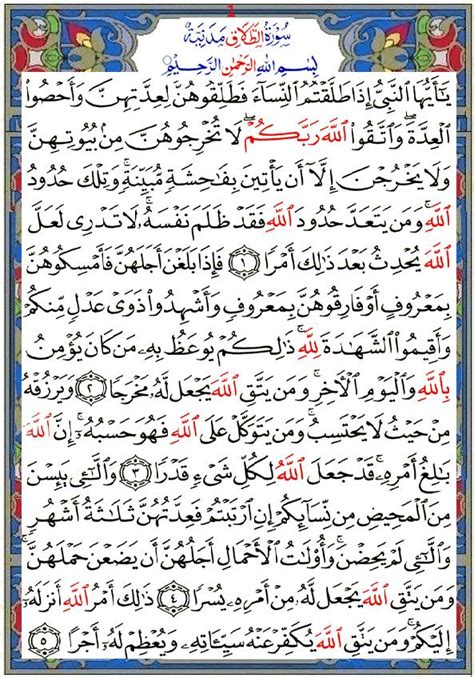 1
سُورَةُ الطَّلَاقِ مَدَنِيَّةٌ
بِسْمِ اللَّهِ الرَّحْمَٰنِ الرَّحِيمِ
يَٰٓأَيُّهَا ٱلنَّبِىُّ إِذَا طَلَّقْتُمُ ٱلنِّسَآءَ فَطَلِّقُوهُنَّ لِعِدَّتِهِنَّ وَأَحْصُوا۟
ٱلْعِدَّةَ ۖ وَٱتَّقُوا۟ ٱللَّهَ رَبَّكُمْ ۖ لَا تُخْرِجُوهُنَّ مِنۢ بُيُوتِهِنَّ
وَلَا يَخْرُجْنَ إِلَّآ أَن يَأْتِينَ بِفَٰحِشَةٍ مُّبَيِّنَةٍ ۚ وَتِلْكَ حُدُودُ
ٱللَّهِ ۚ وَمَن يَتَعَدَّ حُدُودَ ٱللَّهِ فَقَدْ ظَلَمَ نَفْسَهُۥ ۚ لَا تَدْرِى لَعَلَّ
ٱللَّهَ يُحْدِثُ بَعْدَ ذَٰلِكَ أَمْرًا ١ فَإِذَا بَلَغْنَ أَجَلَهُنَّ فَأَمْسِكُوهُنَّ
بِمَعْرُوفٍ أَوْ فَارِقُوهُنَّ بِمَعْرُوفٍ وَأَشْهِدُوا۟ ذَوَىْ عَدْلٍ مِّنكُمْ
وَأَقِيمُوا۟ ٱلشَّهَٰدَةَ لِلَّهِ ۚ ذَٰلِكُمْ يُوعَظُ بِهِۦ مَن كَانَ يُؤْمِنُ
بِٱللَّهِ وَٱلْيَوْمِ ٱلْءَاخِرِ ۚ وَمَن يَتَّقِ ٱللَّهَ يَجْعَل لَّهُۥ مَخْرَجًا ٢ وَيَرْزُقْهُ
مِنْ حَيْثُ لَا يَحْتَسِبُ ۚ وَمَن يَتَوَكَّلْ عَلَى ٱللَّهِ فَهُوَ حَسْبُهُۥٓ ۚ إِنَّ ٱللَّهَ
بَٰلِغُ أَمْرِهِۦ ۚ قَدْ جَعَلَ ٱللَّهُ لِكُلِّ شَىْءٍ قَدْرًا ٣ وَٱلَّٰٓـِٔى يَئِسْنَ
مِنَ ٱلْمَحِيضِ مِن نِّسَآئِكُمْ إِنِ ٱرْتَبْتُمْ فَعِدَّتُهُنَّ ثَلَٰثَةُ أَشْهُرٍ
وَٱلَّٰٓـِٔى لَمْ يَحِضْنَ ۚ وَأُو۟لَٰتُ ٱلْأَحْمَالِ أَجَلُهُنَّ أَن يَضَعْنَ حَمْلَهُنَّ ۚ
وَمَن يَتَّقِ ٱللَّهَ يَجْعَل لَّهُۥ مِنْ أَمْرِهِۦ يُسْرًا ٤ ذَٰلِكَ أَمْرُ ٱللَّهِ أَنزَلَهُۥٓ
إِلَيْكُمْ ۚ وَمَن يَتَّقِ ٱللَّهَ يُكَفِّرْ عَنْهُ سَيِّـَٔاتِهِۦ وَيُعْظِمْ لَهُۥٓ أَجْرًا ٥